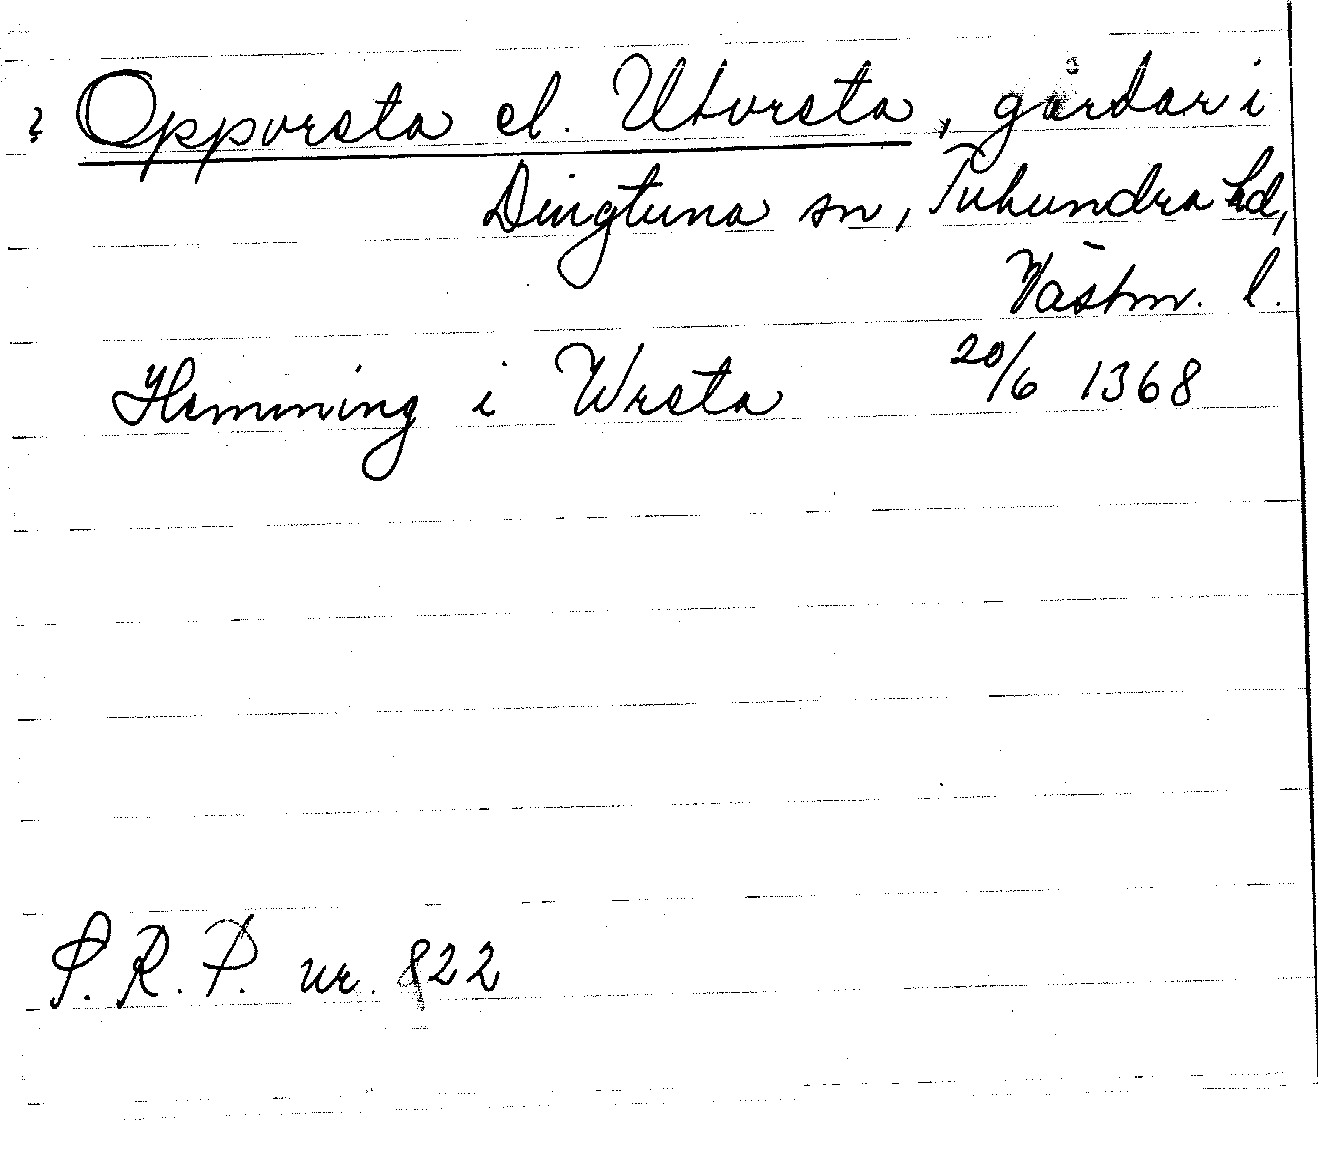 ? Opporsta el. Utorsta, gårdar i
Dingtuna sn, Tuhundra hd,
Västm. l.
Hemming i Wrsta 20/6 1368
S.R.P. nr. 822